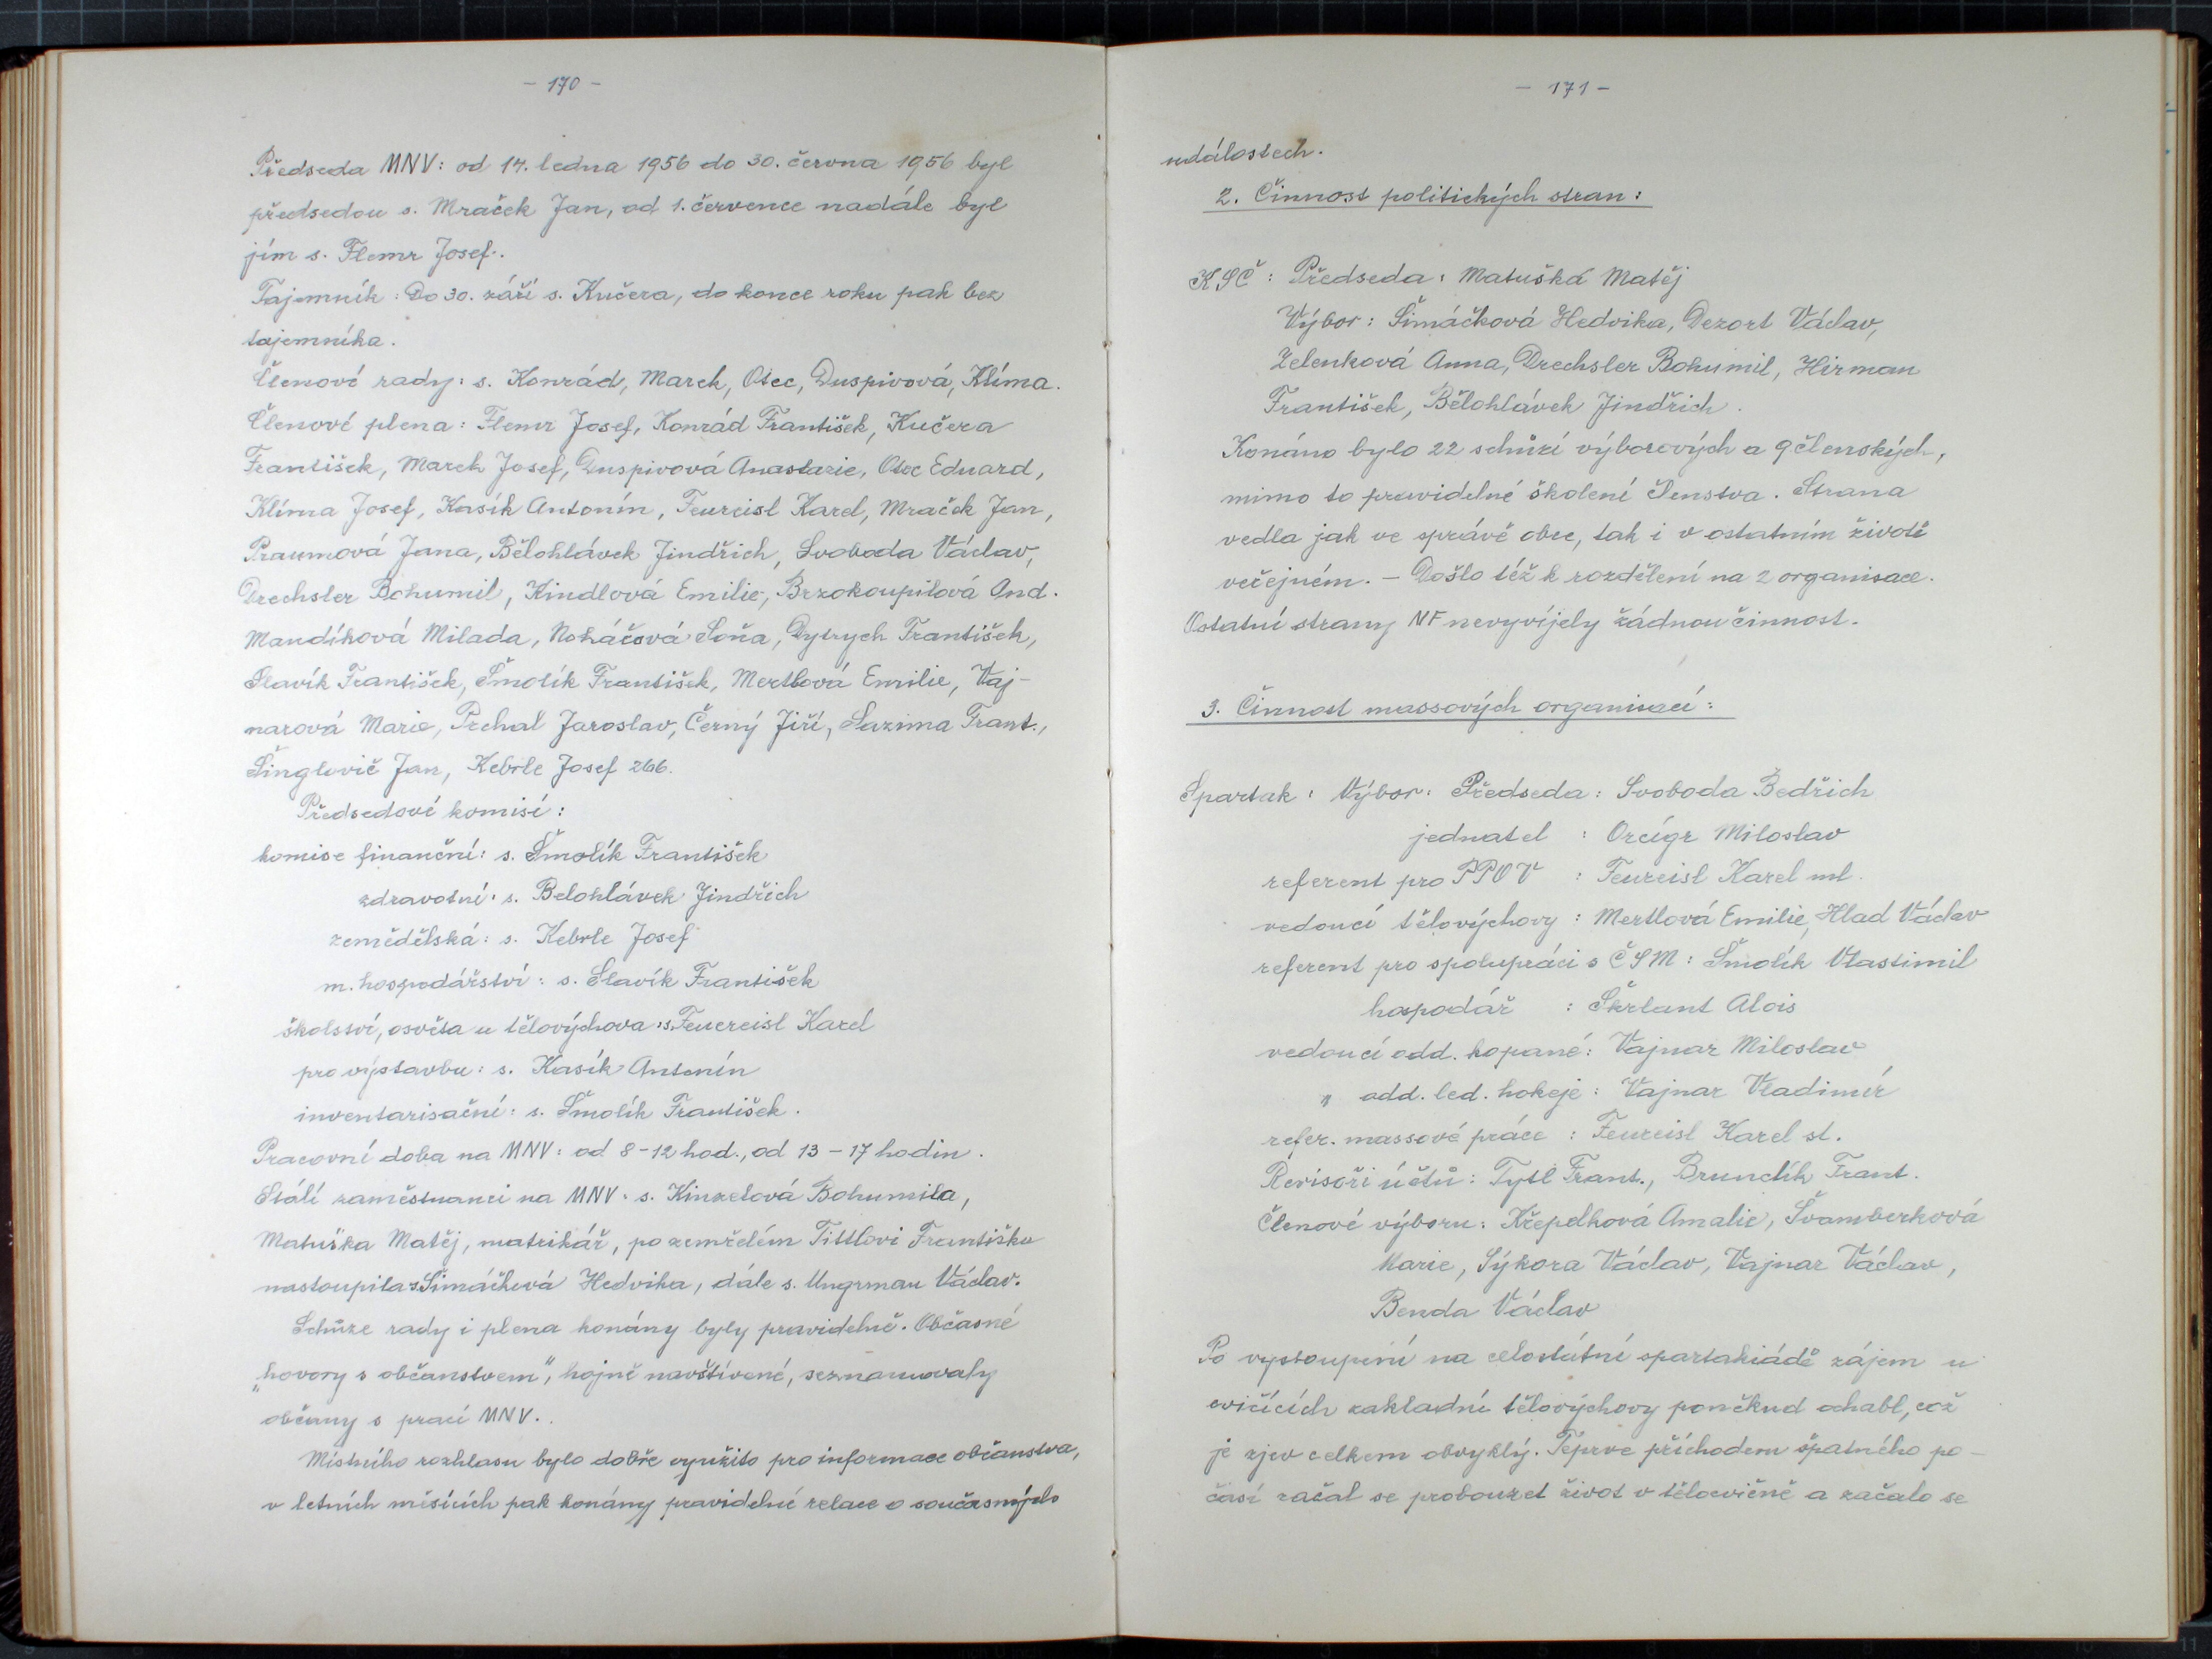 - 170 -
Předseda MNV: od 14. ledna 1956 do 30. června 1956 byl
předsedou s. Mraček Jan, od 1. července nadále byl
jím s. Flemr Josef.
Tajemník: Do 30. září s. Kučera, do konce roku pak bez
tajemníka.
Členové rady: s. Konrád, Marek, Otec, Duspivová, Klíma.
Členové plena: Flemr Josef, Konrád František, Kučera
František, Marek Josef, Duspivová Anastazie, Otec Eduard,
Klíma Josef, Kasík Antonín, Feureisl Karel, Mraček Jan,
Praumová Jana, Bělohlávek Jindřich, Svoboda Václav,
Drechsler Bohumil, Kindlová Emilie, Brzokoupilová And.
Mandíková Milada, Noháčová Soňa, Dytrych František,
Slavík František, Šmolík František, Mertlová Emilie, Vaj-
narová Marie, Prchal Jaroslav, Černý Jiří, Sazima Frant.,
Šinglovič Jan, Kebrle Josef 266.
Předsedové komisí:
komise finanční: s. Šmolík František
zdravotní: s. Belohlávek Jindřich
zemědělská: s. Kebrle Josef
m. hospodářství: s. Slavík František
školství, osvěta a tělovýchova: s. Feuereisl Karel
pro výstavbu: s. Kasík Antonín
inventarisační: s. Šmolík František.
Pracovní doba na MNV: od 8-12 hod., od 13-17 hodin.
Stálí zaměstnanci na MNV: s. Kinzelová Bohumila,
Matuška Matěj, matrikář, po zemřelém Tittlovi Františku
nastoupila s. Šimáčková Hedvika, dále s. Ungrman Václav.
Schůze rady i plena konány byly pravidelně. Občasné
„hovory s občanstvem", hojně navštívené, seznamovaly
občany s prací MNV.
Místního rozhlasu bylo dobře využito pro informace občanstva,
v letních měsících pak konány pravidelné relace o současných
- 171 -
událostech.
2. Činnost politických stran:
KSČ: Předseda: Matuška Matěj
Výbor: Šimáčková Hedvika, Dezort Václav,
Zelenková Anna, Drechsler Bohumil, Hirman
František, Bělohlávek Jindřich.
Konáno bylo 22 schůzí výborových a 9 členských,
mimo to pravidelné školení členstva. Strana
vedla jak ve správě obce, tak i v ostatním životě
večejném. - Došlo též k rozdělení na 2 organisace.
Ostatní strany NF nevyvíjely žádnou činnost.
3. Činnost massových organisací:
Spartak: Výbor: Předseda: Svoboda Bedřich
jednatel : Orcígr Miloslav
referent pro PPOV : Feureisl Karel ml.
vedoucí tělovýchovy : Mertlová Emilie, Hlad Václav
referent pro spolupráci s ČSM: Šmolík Vlastimil
hospodář : Škrlant Alois
vedoucí odd. kopané: Vajnar Miloslav
" odd. led. hokeje: Vajnar Vladimír
refer. massové práce : Feureisl Karel st.
Revisoři účtů: Tytl Frant., Brunclík Frant.
Členové výboru: Křepelková Amalie, Švamberková
Marie, Sýkora Václav, Vajnar Václav,
Benda Václav
Po vystoupení na celostátní spartakiádě zájem u
cvičících zakladní tělovýchovy poněkud ochabl, což
je zjev celkem obvyklý. Teprve příchodem špatného po-
časí začal se probouzet život v tělocvičně a začalo se